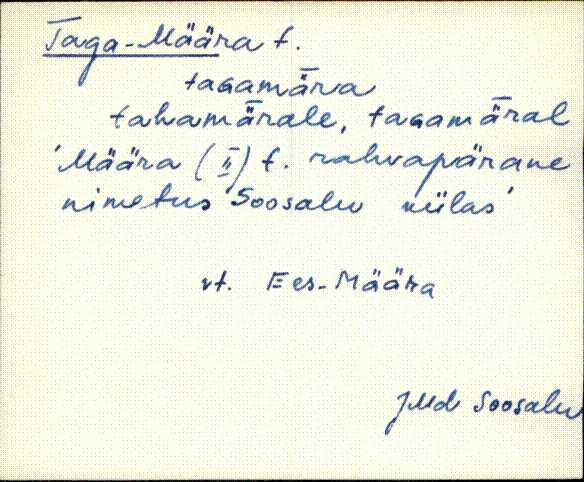 Taga-Määra t.
tagamǟra
tahamǟrale, tagamǟral
'Määra (II) t. rahvapärane
nimetus Soosalu külas'
vt. Ees-Määra
JMd Soosalu